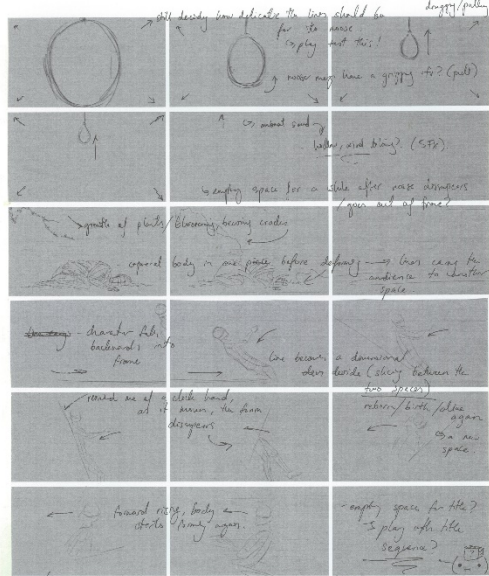 still deciding how delicate the lines should be
for the noose
so, play test this!
noose may have a gripping sfx? (pull)
ambient sound
hollow, wind blowing? (SFX)
empty space for a while after noose disappears
/goes out of frame?
growth of plants/blooming, becoming crodes
corporeal body in one piece before deforming → lines carry the
audience to another
space
- character falls
backwards into
frame
line becomes a dimensional
door divide (slicing between the
two spaces)
remind me of a clock hand,
as it turns, the form
disappears
reborn/birth/alive
again
in a new
space.
forward rising, body
starts forming again.
- empty space for title?
play with title
sequence?